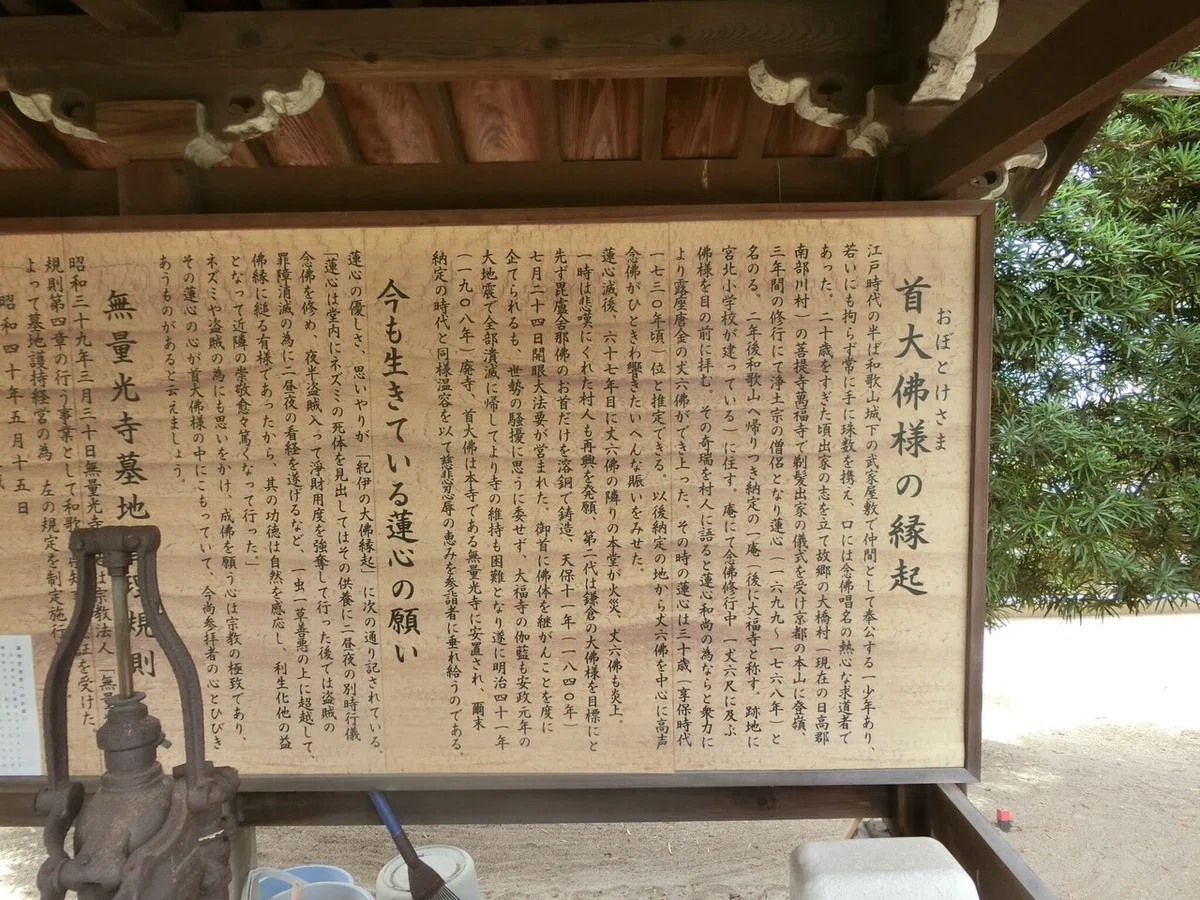 おぼとけさま
首大佛様の縁起
江戸時代の半ば和歌山城下の武家屋敷で仲間として奉公する一少年あり、
若いにも拘らず常に手に珠数を携え、口には念佛唱名の熱心な求道者で
あった。二十歳をすぎた頃出家の志を立て故郷の大橋村（現在の日高郡
南部川村）の菩提寺萬福寺で剃髪出家の儀式を受け京都の本山に登嶺、
三年間の修行にて浄土宗の僧侶となり蓮心（一六九九～一七六八年）と
名のる。二年後和歌山へ帰りつき納定の一庵（後に大福寺と称す。跡地に
宮北小学校が建っている）に住す。庵にて念佛修行中一丈六尺に及ぶ
佛様を目の前に拝む、その奇瑞を村人に語ると蓮心和尚の為ならと衆力に
より露座唐金の丈六佛ができ上った。その時の蓮心は三十歳（享保時代
一七三〇年頃）位と推定できる。以後納定の地から丈六佛を中心に高声
念佛がひときわ響きたいへんな賑いをみせた。
蓮心滅後、六十七年目に丈六佛の隣りの本堂が火災、丈六佛も炎上、
一時は悲嘆にくれた村人も再興を発願、第二代は鎌倉の大佛様を目標にと
先ず毘盧舎那佛のお首だけを溶銅で鋳造、天保十一年（一八四〇年）
七月二十四日開眼大法要が営まれた。御首に佛体を継がんことを度に
企てられるも、世勢の騒擾に思うに委せず、大福寺の伽藍も安政元年の
大地震で全部潰滅に帰してより寺の維持も困難となり遂に明治四十一年
（一九〇八年）廃寺、首大佛は本寺である無量光寺に安置され、爾来
納定の時代と同様温容を以て慈悲忍辱の恵みを参詣者に垂れ給うのである。
今も生きている蓮心の願い
蓮心の優しさ、思いやりが「紀伊の大佛縁起」に次の通り記されている。
「蓮心は堂内にネズミの死体を見出してはその供養に二昼夜の別時行儀
念佛を修め、夜半盗賊入って浄財用度を強奪して行った後では盗賊の
罪障消滅の為に二昼夜の看経を遂げるなど、一虫一草善悪の上に超越して、
佛縁に縋る有様であったから、其の功徳は自然を感応し、利生化他の益
となって近隣の崇敬愈々篤くなって行った。」
ネズミや盗賊の為にも思いをかけ、成佛を願う心は宗教の極致であり、
その蓮心の心が首大佛様の中にこもっていて、今尚参拝者の心とひびき
あうものがあると云えましょう。
無量光寺墓地 規則
昭和三十九年三月三十日無量光寺 は宗教法人「無量
規則第四章の行う事業として和歌 証を受けた。
よって墓地護持経営の為、左の規定を制定施行
昭和四十年五月十五日